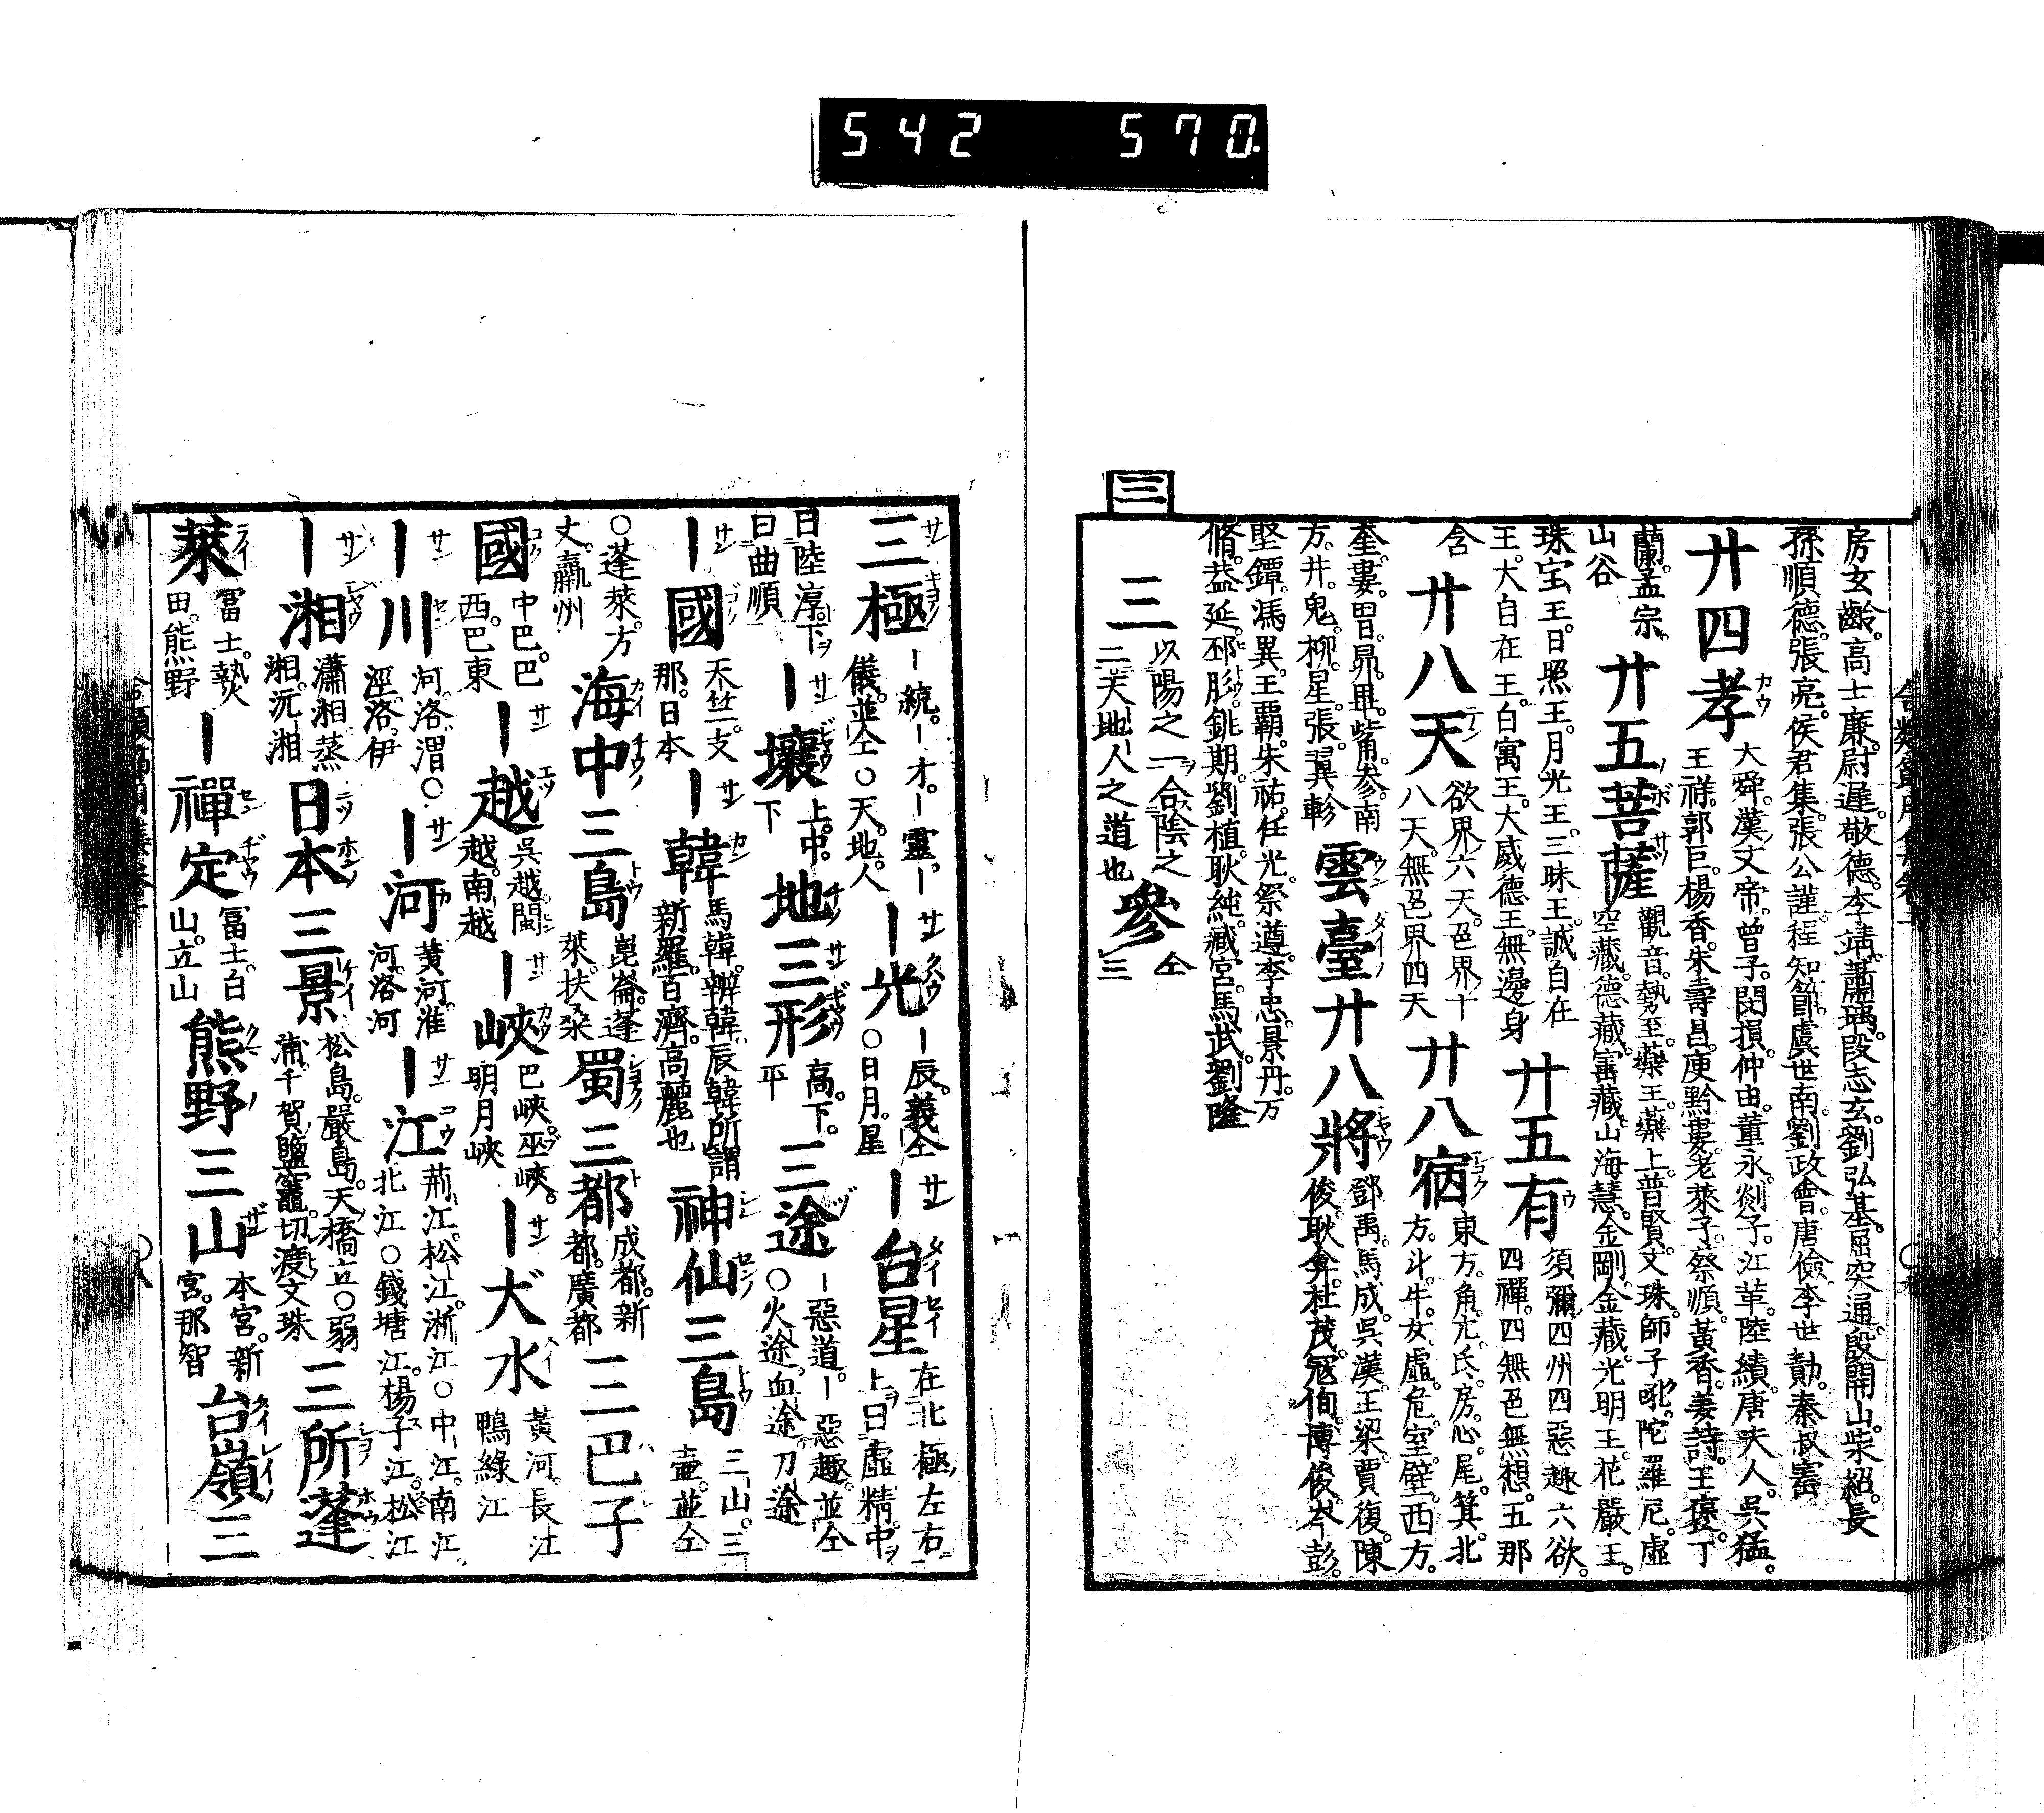 542 570
房玄齡。高士廉。尉遲。敬德。李靖。蕭瑀。段志玄。劉弘基。屈突通。殷開山。柴紹。長
孫順德。張亮。侯君集。張公謹。程知節。虞世南。劉政會。唐儉。李世勣。秦叔寳
廿四孝 大舜。漢文帝。曾子。閔損。仲由。董永。剡子。江革。陸績。唐夫人。吳猛。
王祥。郭巨。楊香。朱壽昌。庾黔婁。老萊子。祭順。黃香。姜詩。王褒。丁
蘭。孟宗。
山谷
廿五菩薩 觀音。勢至。藥王。藥上。普賢。文珠。師子吼。陀羅尼。虛
空藏。德藏。寳藏。山海慧。金剛。金藏。光明王。花嚴王。
珠宝王。日照王。月光王。三昧王。誠自在
王。大自在王。白寓王。大威德王。無邊身
廿五有 須彌四州四惡趣六欲。
四禪。四無色無想。五那
含
廿八天 欲界六天。色界十
八天。無色界四天
廿八宿 東方。角亢氐房心尾箕。北
方。斗牛女虛危室壁。西方。
奎婁。胃昴畢觜參。南
方。井。鬼。柳。星。張。翼軫
雲臺廿八將 鄧禹。馬成。吳漢。王梁。賈復。陳
俊。耿弇。杜茂。冦恂。傅俊。岑彭。
堅鐔。馮異。王覇。朱祐。任光。祭遵。李忠。景丹。万
脩。葢延。邳肜。銚期。劉植。耿純。臧宮。馬武。劉隆
三
三 以陽之一合陰之
二天地人之道也
參 仝
三
三極 ー統。ー才。ー靈。ー
儀。並仝○天。地。人
ー光 ー辰。義仝
○日。月。星
ー台星 在北極左右
上曰虛精。中
曰陸淳。下
曰曲順
ー壤 上。中。
下
地三形 高。下。
平
三途 ー惡道。ー惡趣。並仝
○火途。血途。刀途
ー國 天竺。支
那。日本
ー韓 馬韓。辨韓。辰韓所謂
新羅。百濟。高麗也
神仙三島 三山。三
壷。並仝
○蓬萊。方
丈。瀛州
海中三島 崑崙。蓬
萊。扶桑
蜀三都 成都。新
都。廣都
三巴子
國 中巴。巴
西。巴東
ー越 吳越。閩
越。南越
ー峽 巴峽。巫峽。
明月峽
ー大水 黃河。長江
鴨綠江
ー川 河。洛。渭○
涇。洛。伊
ー河 黃河。淮
河。洛河
ー江 荊江。松江。淅江○中江。南江。
北江○錢塘江。楊子江。松江
ー湘 瀟湘。蒸
湘。沅湘
日本三景 松島。嚴島。天橋立○弱
浦。千賀鹽竈。切渡文珠
三所蓬
萊 冨士。𤍠
田。熊野
ー禪定 冨士。白
山。立山
熊野三山 本宮。新
宮。那智
台嶺三